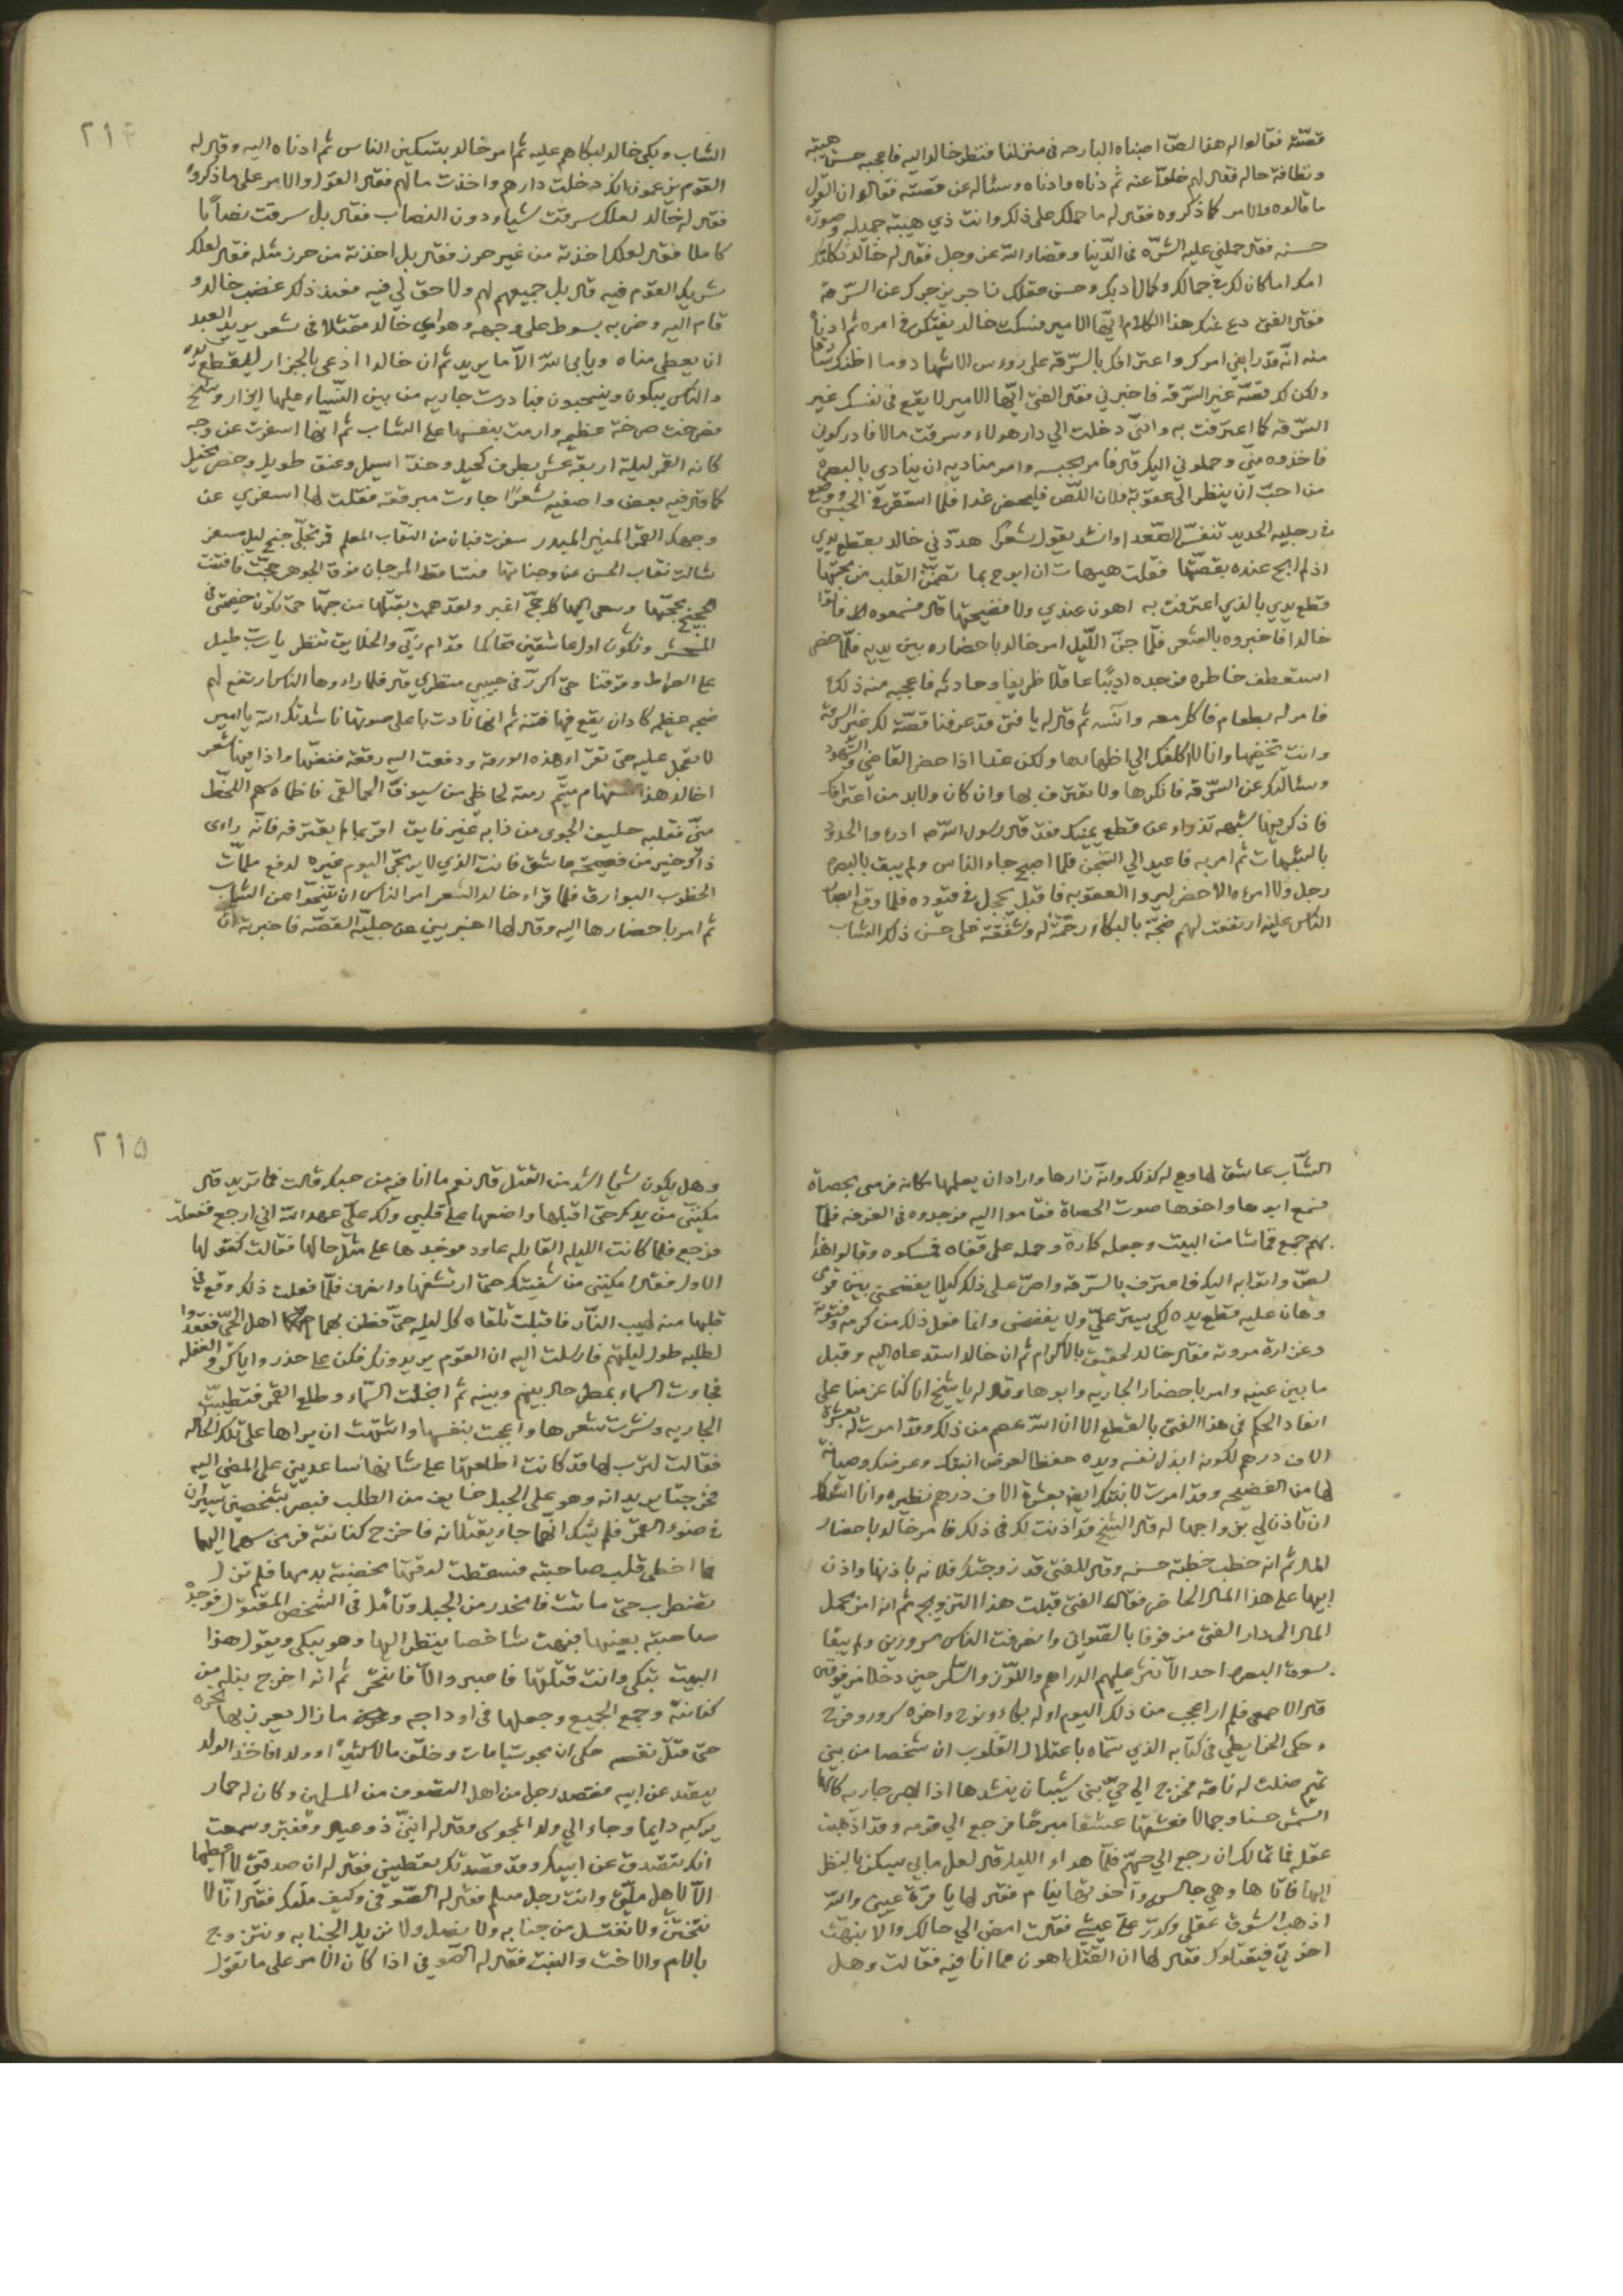 قصّته فقالوا له هذا لصّ اصبناه البارحه في منزلنا فنظر خالد اليه فاعجبه حسن هيبته
ونظافة حاله فقال لهم خلّوا عنه ثم دناه وادناه وسئاله عن قصته فقال ان القول
ما قالوه والامر كما ذكروه فقال له ما حملك على ذلك وانت ذي هيبة جميله وصورة
حسنه فقال حملني عليه الشرّه في الدّنيا وقضاء الله عز وجل فقال له خالد ثكلتك
امك اما كان لك في جمالك وكمال ادبك وحسن عقلك زاجر يزجرك عن السّرقة
فقال الفتى دع عنك هذا الكلام ايّها الامير فسكت خالد يفتكر في امره ثم ادناه
منه انّه قد رابني امرك واعترافك بالسّرقة على رووس الاشهاد وما اظنك سارقا
ولكن لك قصّة غير السّرقه فاخبرني فقال الفتى ايّها الامير لا يقع في نفسك غير
السّرقه كما اعترفت به وانّني دخلت الي دار هولاء وسرقت مالا فادركوني
فاخذوه منّي وحملوني اليك قال فامر بحبسه وامر مناديه ان ينادي بالبصرة
من احبّ ان ينظر الى عقوبة فلان اللّص فليحضر غدا فلما استقر في الحبس ووضع
في رجليه الحديد تنفس الصّعدا وانشد يقول شعرًا هدّدني خالد بقطع يدي
اذ لم ابح عنده بقصّتها فقلت هيهات ان ابوح بما تضمّن القلب من محبّتها
قطع يدي بالذي اعترفت به اهون عندي ولا فضيحتها قال فسمعوه فاتوا
خالدا فاخبروه بالشعر فلمّا جنّ اللّيل امر خالد باحضاره بين يديه فلمّا حضر
استعطف خاطره فوجده اديبًا عاقلا ظريفا وحادثه فاعجبه منه ذلك
فامر له بطعام فاكل معه وآنسه ثم قال له يا فتى قد عرفنا قصّة لك غير السرقة
وانت تخفيها وانا لا اكلفك الي اظهارها ولكن غدا اذا حضر القاضي والشهود
وسئالك عن السّرقه فانكرها ولا تعترف بها وان كان ولا بد من اعترافك
فاذكر فيها شبهه تدراء عن قطع يمينك فقد قال رسول الله ص ادرءوا الحدود
بالشبهات ثم امر به فاعيد الي السّجن فلما اصبح جاء الناس ولم يبق بالبصره
رجل ولا امرءه الا حضر ليروا العقوبه فاقبل يحجل في قيوده فلما وقع ابصار
الناس عليه ارتفعت لهم ضجّة بالبكاء رحمة له وشفقة على حسن ذلك الشاب
٢١٤
الشاب وبكى خالد لبكاهم عليه ثم امر خالد بتسكين الناس ثم ادناه اليه وقال له
القوم يزعمون انك دخلت دارهم واخذت مالهم فقال القول والامر على ما ذكروه
فقال له خالد لعلك سرقت شيا دون النصاب فقال بل سرقت نصابًا
كاملا فقال لعلك اخذته من غير حرز فقال بل اخذته من حرز مثله فقال لعلك
شريك القوم فيه قال بل جميعهم لهم ولا حق لي فيه فعند ذلك غضب خالد و
قام اليه وضربه بسوط على وجهه وهواي خالد متمثلا في شعر يريد العبد
ان يعطى مناه ويابى الله الاّ ما يريد ثم ان خالدا ادعى بالجزار ليقطع يده
والناس يبكون وينتحبون فبادرت جاريه من بين النّساء عليها ازار وسخ
فصرخت صرخة عظيمه وارمت بنفسها على الشاب ثم انها اسفرت عن وجه
كانه القمر ليلة اربعة عشر بطرف كحيل وخدّ اسيل وعنق طويل وخصر نحيل
كما قال فيه بعض واصفيه شعرًا جاءت مبرقعة فقلت لها اسفري عن
وجهك القمر المنير المبدر سفرت فبان من النقاب المعلم قمر تجلّى جنح ليل مسفر
شالت نقاب الحسن عن وجناتها فتساقط المرجان فوق الجوهر حجّت فافتنت
الحجيج بحجّتها وسعى اليها كل حجّ اغبر ولقد هممت بقتلها من حبّها حتى تكون خصيمتي في
المحشر ونكون اول عاشقين تحاكما قدام ربّي والخلايق تنظر يا رب طيل
على الصراط وقوفنا حتى اكرّر في حبيبي منظري قال فلما راءوها الناس ارتفع لهم
ضجه عظيمه كاد ان يقع فيها فتنة ثم انها نادت باعلى صوتها ناشدتك الله يا امير
لا تعجل عليه حتى تقراء هذه الورقه ودفعت اليه رقعة ففضّها واذا فيها شعر
اخالد هذا مستهام متيّم رمته لحاظي من سيوف الحمالق فاظماه سهم اللّحظ
منّي فقلبه حليف الجوى من ذابه غير فايق اقرّ بما لم يقترفه فانّه راءى
ذاك خير من فضيحة عاشق فانت الذي لا يرتجى اليوم غيره لدفع ملمّات
الخطوب البوارق فلما قراء خالد الشعر امر الناس ان يتنحّوا عن الشاب
ثم امر باحضارها اليه وقال لها اخبريني عن جليّة القصّه فاخبرته ان
الشّاب عاشق لها وهي له كذلك وانّه زارها واراد ان يعلمها مكانه فرمى بحصاة
فسمع ابوها واخوها صوت الحصاة فقاموا اليه فوجدوه في الغرفه فلمّا
بهم جمع قماشا من البيت وجعله كارة وحمله على قفاه فمسكوه وقالوا هذا
لصّ واتوا به اليك فاعترف بالسّرقه واصرّ على ذلك كيلا يفضحني بين قومى
وهان عليه قطع يده لكي يستر عليّ ولا يفضحني وانما فعل ذلك من كرمه وفتوته
وغزارة مروته فقال خالد لحقيق بالاكرام ثم ان خالدا استدعاه اليه وقبل
ما بين عينيه وامر باحضار الجاريه وابوها وقال له يا شيخ انا كنا عزمنا على
انفاد الحكم في هذا الفتى بالقطع الا ان الله عصم من ذلك وقد امرت له بعشرة
الاف درهم لكونه ابذل نفسه ويده حفظا لعرض ابنتك وعرضك وصيانة
لها من الفضيحه وقد امرت لابنتك ايضا بعشرة الاف درهم نظيره وانا اسئلك
ان تاذن لي بزواجها له قال الشيخ قد اذنت لك في ذلك فامر خالد باحضار
المال ثم انه خطب خطبة حسنه وقال للفتى قد زوجتك فلانه باذنها واذن
ابيها على هذا المال الحاضر فقال الفتى قبلت هذا التزويج ثم انه امر بحمل
المال الى دار الفتى مزفوفا بالصّواني وانصرفت الناس مسرورين ولم يبقا
بسوق البصره احد الّا نثر عليهم الدراهم واللّوز والسّكر حين دخلا مزفوفين
قال الاصمعي فلم ار اعجب من ذلك اليوم اوله بكاء ونوح واخره سرور وفرح
وحكى الخرايطي في كتابه الذي سمّاه باعتلال القلوب ان شخصا من بني
تميم ضلت له ناقة فخرج الي حيّ بني شيبان ينشدها اذا ابصر جاريه كانها
الشمس حسنا وجمالا فعشقها عشقا مبرحًا فرجع الي قومه وقد اذهبت
عقله فما تمالك ان رجع الي حيّهم فلمّا هداء الليل قال لعل ما بي يسكن بالنظر
اليها فاتاها وهي جالس واخوتها نيام فقال لها يا قرّة عيني والله
اذهب الشوق عقلي وكدّر علىّ عيشي فقالت امض الي حالك والا نبهت
اخوتي فيقتلوك فقال لها ان القتل اهون مما انا فيه فقالت وهل
٢١٥
وهل يكون شيا اشد من القتل قال نعم ما انا فيه من حبك قالت فما تريد قال
مكنيني من يدك حتى اقبلها واضعها على قلبي ولك عليّ عهد الله اني ارجع ففعلت
فرجع فلما كانت الليله القابله عاود فوجدها على مثل حالها فقالت كقولها
الاول فقال امكنيني من شفتيك حتى ارتشفها وانصرف فلمّا فعلت ذلك وقع في
قلبها منه لهيب النّار فاقبلت تلقاه كل ليله حتى فطن بهما اهل الحيّ فقعدوا
لطلبه طول ليلتهم فارسلت اليه ان القوم يريدونك فكن على حذر واياك والغفله
فجاءت السماء بمطر حال بينهم وبينه ثم انجلت السّماء وطلع القمر فتطيبت
الجاريه ونشرت شعرها واعجبت بنفسها واشتهت ان يراها على تلك الحاله
فقالت لترب لها قد كانت اطلعتها على شانها ساعديني على المضي اليه
فخرجتا يريدانه وهو على الجبل خايف من الطلب فبصر بشخصين يسيران
في ضوء القمر فلم يشك انهما جاءا يقتلانه فاخرج كنانته فرمى سهما اليهما
فما اخطى قلب صاحبته فسقطت لوقتها مخضبة بدمها فلم تزل
تضطرب حتى ماتت فانحدر من الجبل وتامّل في الشخص المقتول فوجد
صاحبته بعينها فبهت شاخصا ينظر اليها وهو يبكي ويقول هذا
البيت تبكي وانت قتلتها فاصبر والّا فانتحر ثم انه اخرج نبله من
كنانته وجمع الجميع وجعلها في اوداجه ما زال يضرب بها نحره
حتى قتل نفسه حكى ان مجوسيّا مات وخلّف مالا كثيرًا وولدا فاخذ الولد
يتصدق عن ابيه فقصد رجل من اهل التصوف من المسلمين وكان له حمار
يركبه دايما وجاء الي ولد المجوسى وقال له انّني ذو عيله وفقير وسمعت
انك تتصدق عن ابيك وقد قصدتك تعطيني فقال له ان صدقتي لا اعطيها
الّا لاهل ملّتي وانت رجل مسلم فقال له الصّوفي وكيف ملّتك فقال انّا لا
نختتن ولا نغتسل من جنابه ولا نصل ولا نزيل الجنابه ونتزوج
بالام والاخت والبنت فقال له الصّوفي اذا كان الامر على ما تقول